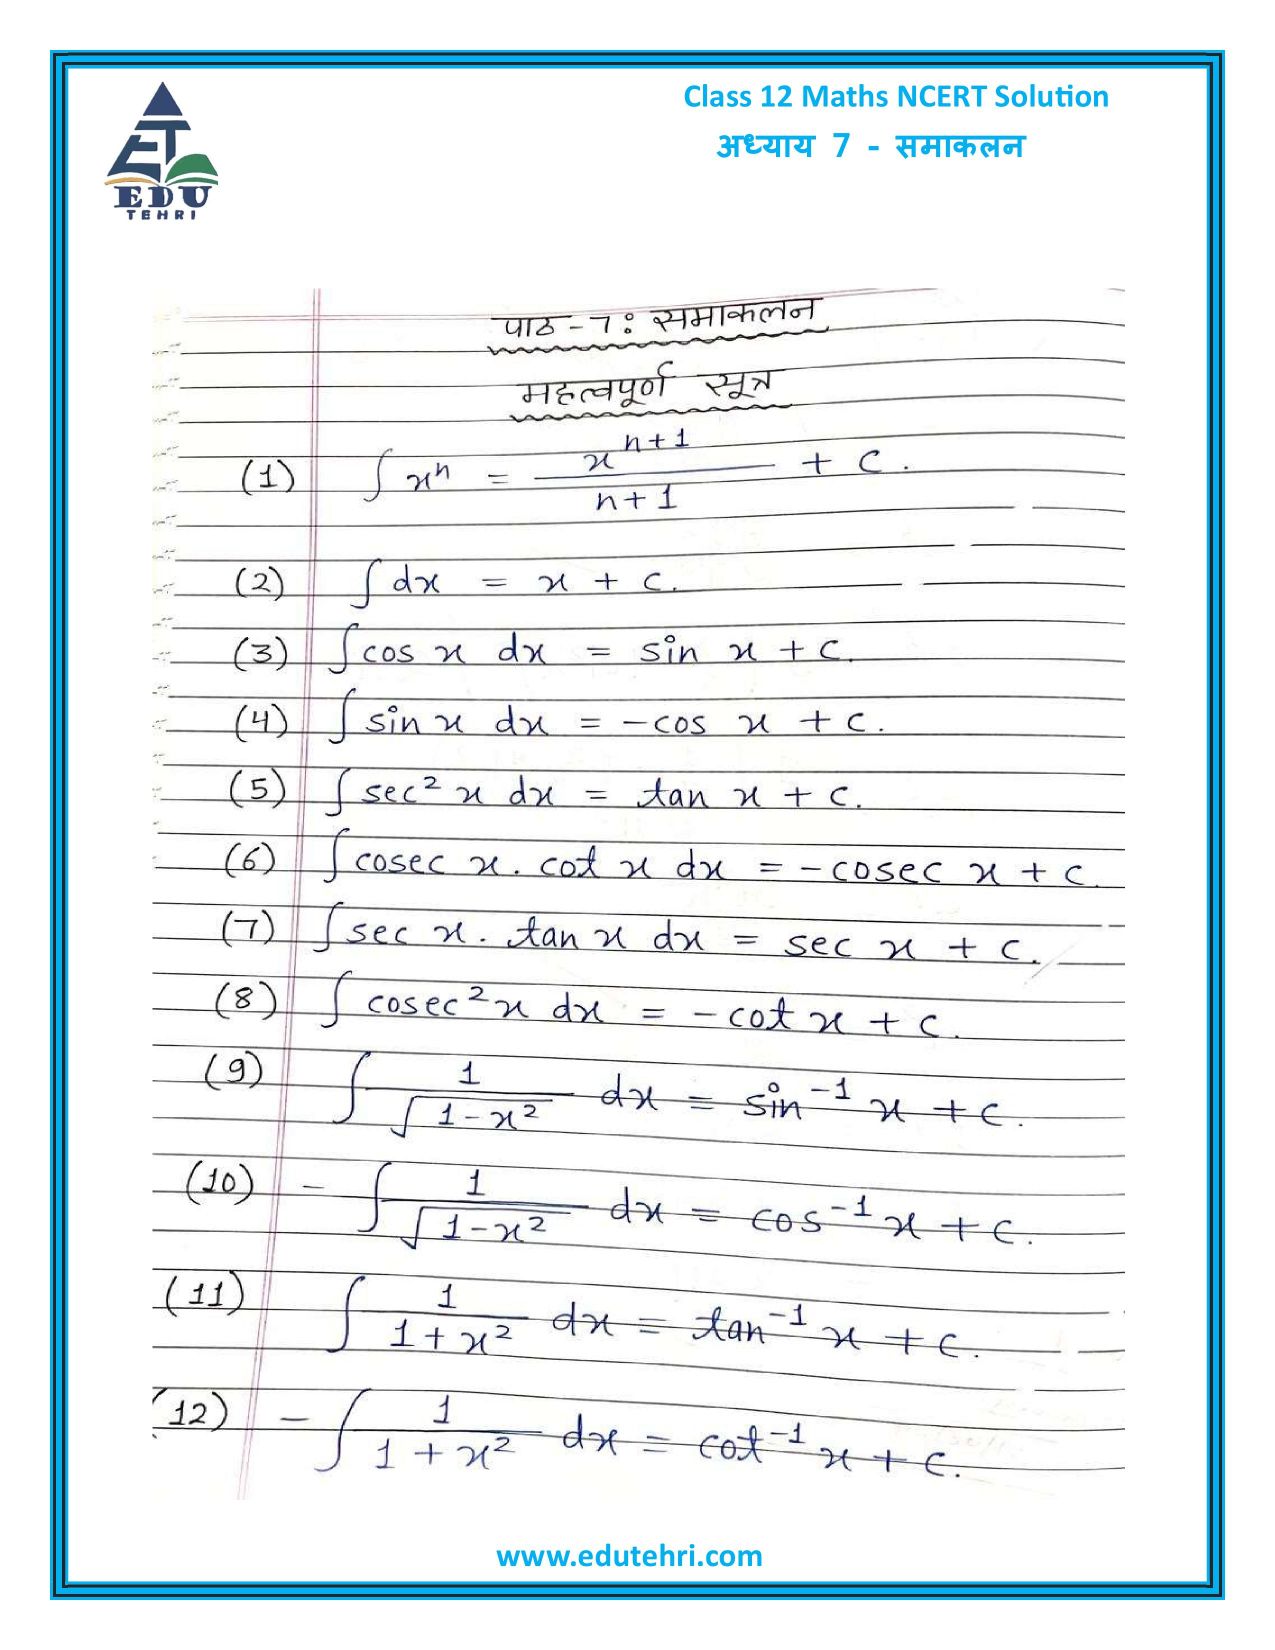 EDU
TEHRI
Class 12 Maths NCERT Solution
अध्याय 7 - समाकलन
पाठ - 7 : समाकलन
महत्वपूर्ण सूत्र
(1) ∫ xⁿ = xⁿ⁺¹/(n+1) + c.
(2) ∫ dx = x + c.
(3) ∫ cos x dx = sin x + c.
(4) ∫ sin x dx = -cos x + c.
(5) ∫ sec² x dx = tan x + c.
(6) ∫ cosec x . cot x dx = -cosec x + c
(7) ∫ sec x . tan x dx = sec x + c.
(8) ∫ cosec² x dx = -cot x + c.
(9) ∫ 1/√(1-x²) dx = sin⁻¹ x + c.
(10) - ∫ 1/√(1-x²) dx = cos⁻¹ x + c.
(11) ∫ 1/(1+x²) dx = tan⁻¹ x + c.
(12) - ∫ 1/(1+x²) dx = cot⁻¹ x + c.
www.edutehri.com